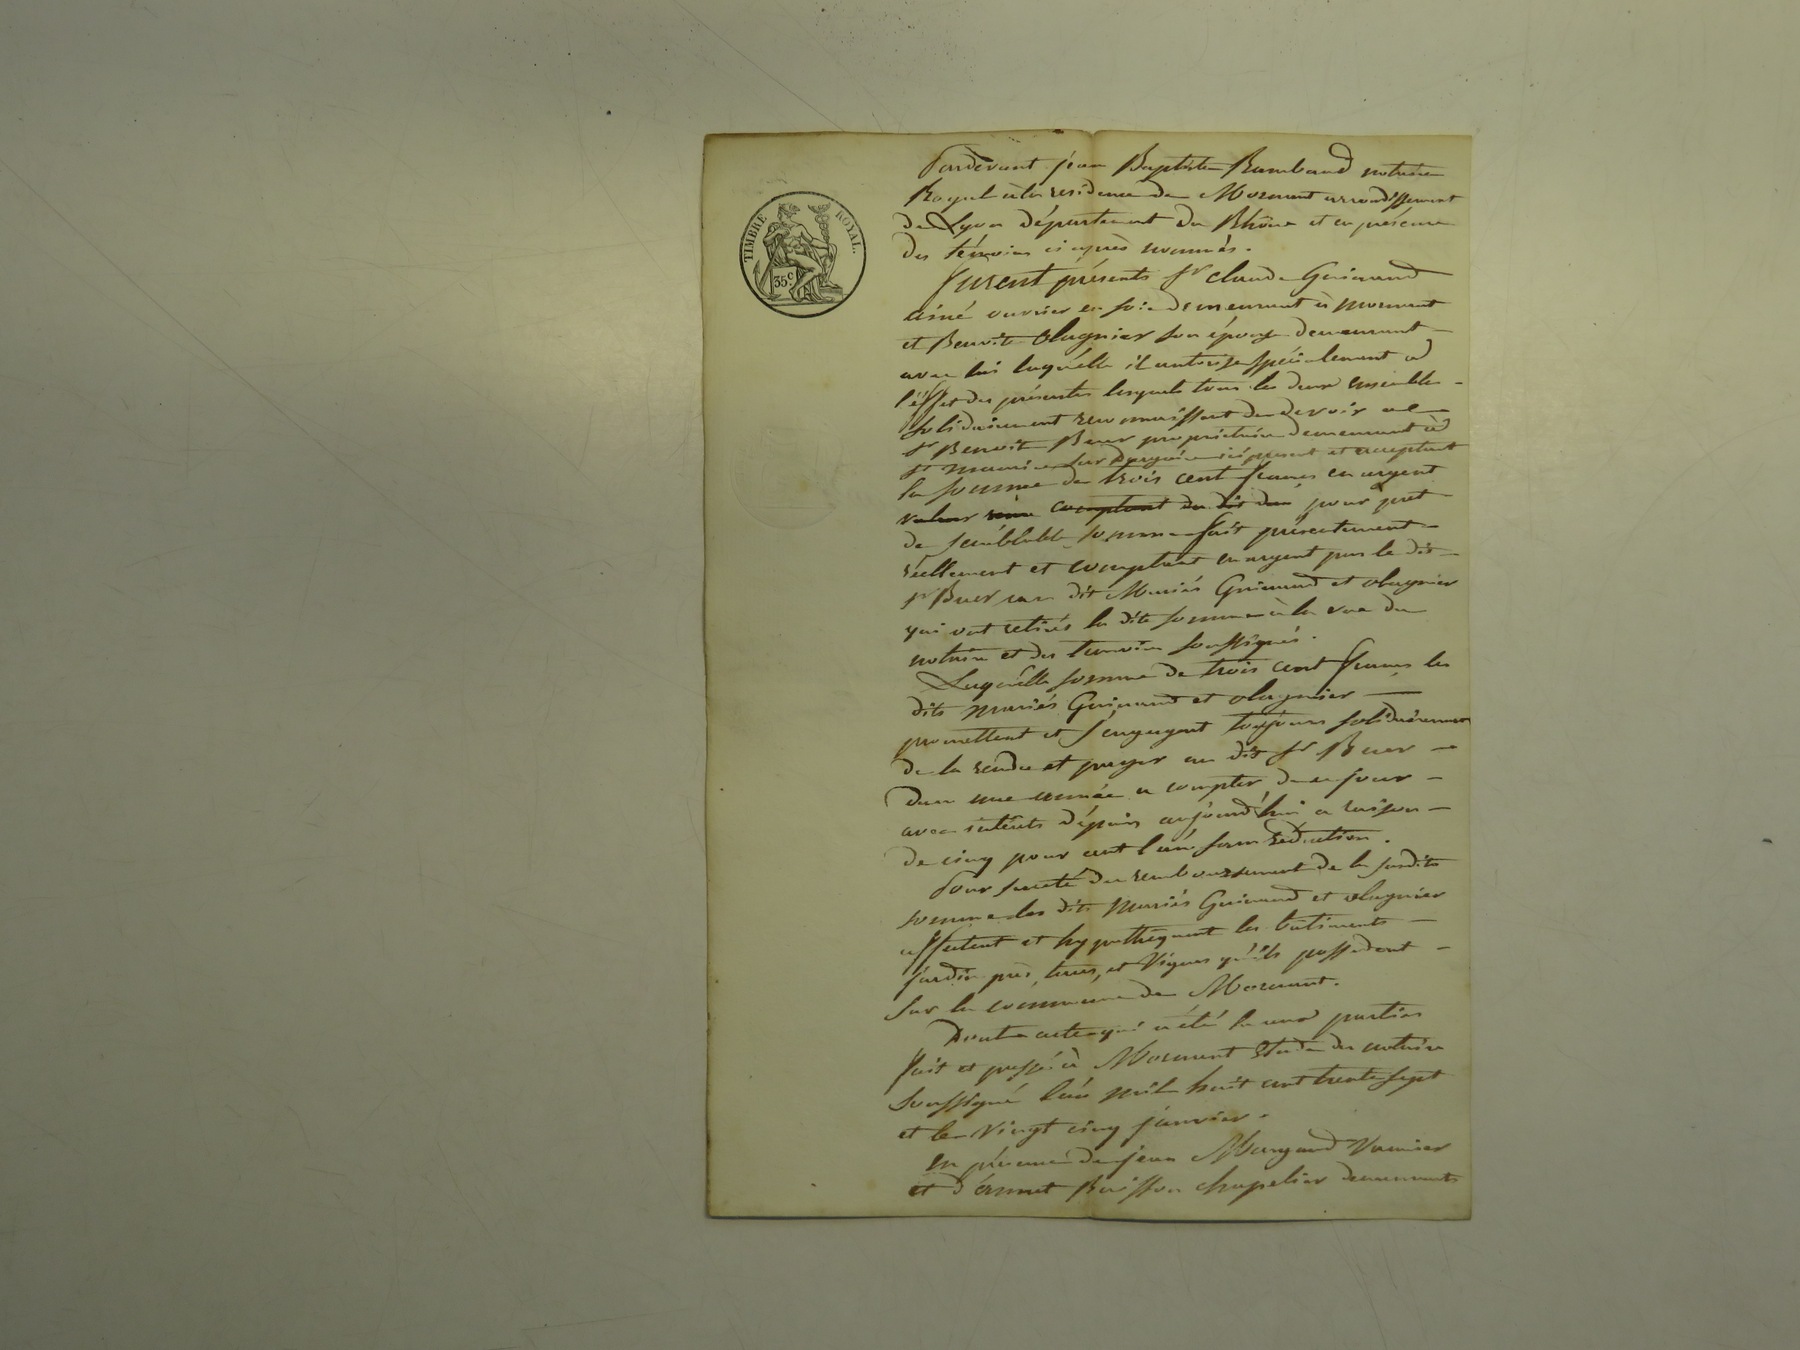 TIMBRE ROYAL.
35 c.
Pardevant jean Baptiste Rambaud notaire
Royal à la residence de Mornant arrondissement
de Lyon département du Rhône et en présence
des témoins ci après nommés.
furent présents Sr claude Guinand
ainé ouvrier en soie demeurant à mornant
et Benoite olagnier son épouse demeurant
avec lui laquelle il autorise spécialement a
l'éffet des présentes lesquels tous les deux ensemble
solidairement reconnaissent de devoir au
Sr Benoit Buer proprietaire demeurant à
St maurice sur Dargoire ici présent et acceptant
la somme de trois cent francs en argent
valeur comptant du dit pour pret
de semblable somme fait présentement
réellement et comptant en argent par le dit
Sr Buer aux dit Mariés Guinand et olagnier
qui ont retirés la dite somme à la vue du
notaire et des temoins soussignés.
Laquelle somme de trois cent francs les
dits mariés Guinand et olagnier
promettent et s'engagent toujours solidairement
de la rendre et payer au dit Sr Buer
dans une année a compter de ce jour
avec intérêts dépuis aujourd'hui a raison
de cinq pour cent l'an sans réduction.
Pour sureté du remboursement de la susdite
somme les dits mariés Guinand et olagnier
affectent et hypothèquent les bâtiments
jardin près, terres, et Vignes qu'ils possedent
sur la commune de Mornant.
Dont acte qui a été lu aux parties
fait et passé à Mornant étude du notaire
soussigné l'an mil huit cent trente sept
et le vingt cinq janvier.
en présence de jean
et d'ennet Buisson chapelier demeurants